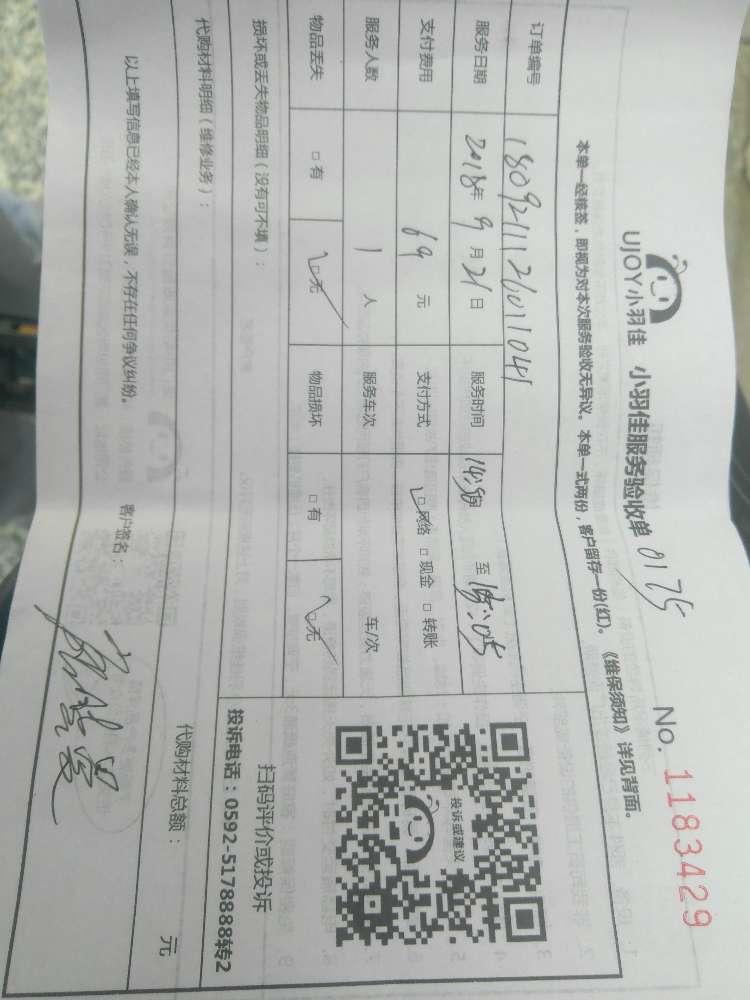 UJOY小羽佳 小羽佳服务验收单 0175 No. 1183429
本单一经核签，即视为对本次服务验收无异议。本单一式两份，客户留存一份(红)。《维保须知》详见背面。
订单编号 180921112601041
服务日期 2018年 9月 21日 服务时间 至
支付费用 69 元 支付方式 □网络 □现金 □转账
服务人数 1 人 服务车次 车/次
物品丢失 □有 □无 物品损坏 □有 □无
投诉或建议
扫码评价或投诉
投诉电话：0592-5178888转2
损坏或丢失物品明细（没有可不填）：
代购材料明细（维修业务）： 代购材料总额： 元
以上填写信息已经本人确认无误，不存在任何争议纠纷。 客户签名：